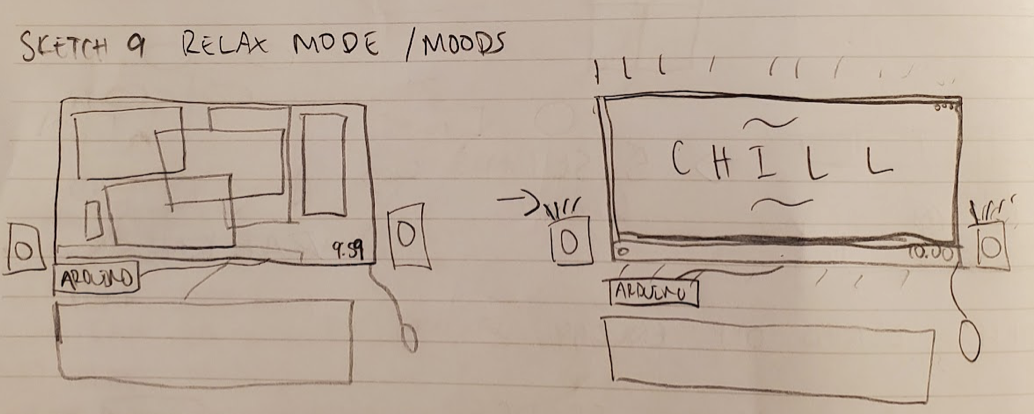 SKETCH 9 RELAX MODE / MOODS
9.59
ARDUINO
~
CHILL
~
10.00
ARDUINO